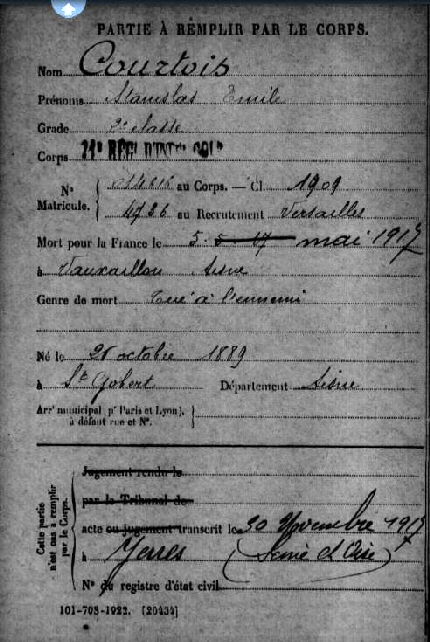 PARTIE À REMPLIR PAR LE CORPS.
Nom Courtois
Prénoms Stanislas Emile
Grade 2e classe
Corps RÉGt D'INFie COLle
Nº Matricule. au Corps. — Cl. 1909
au Recrutement Versailles
Mort pour la France le 5 5 17 mai 1917
à Vauxaillon Aisne
Genre de mort Tué à l'ennemi
Né le octobre 1889
à St Gobert Département Aisne
Arrt municipal (pr Paris et Lyon),
à défaut rue et Nº.
Cette partie n'est pas à remplir par le Corps.
Jugement rendu le
par le Tribunal de
acte ou jugement transcrit le 30 Novembre 1917
à Yerres (Seine et Oise)
Nº du registre d'état civil
101-708-1922. [20434]